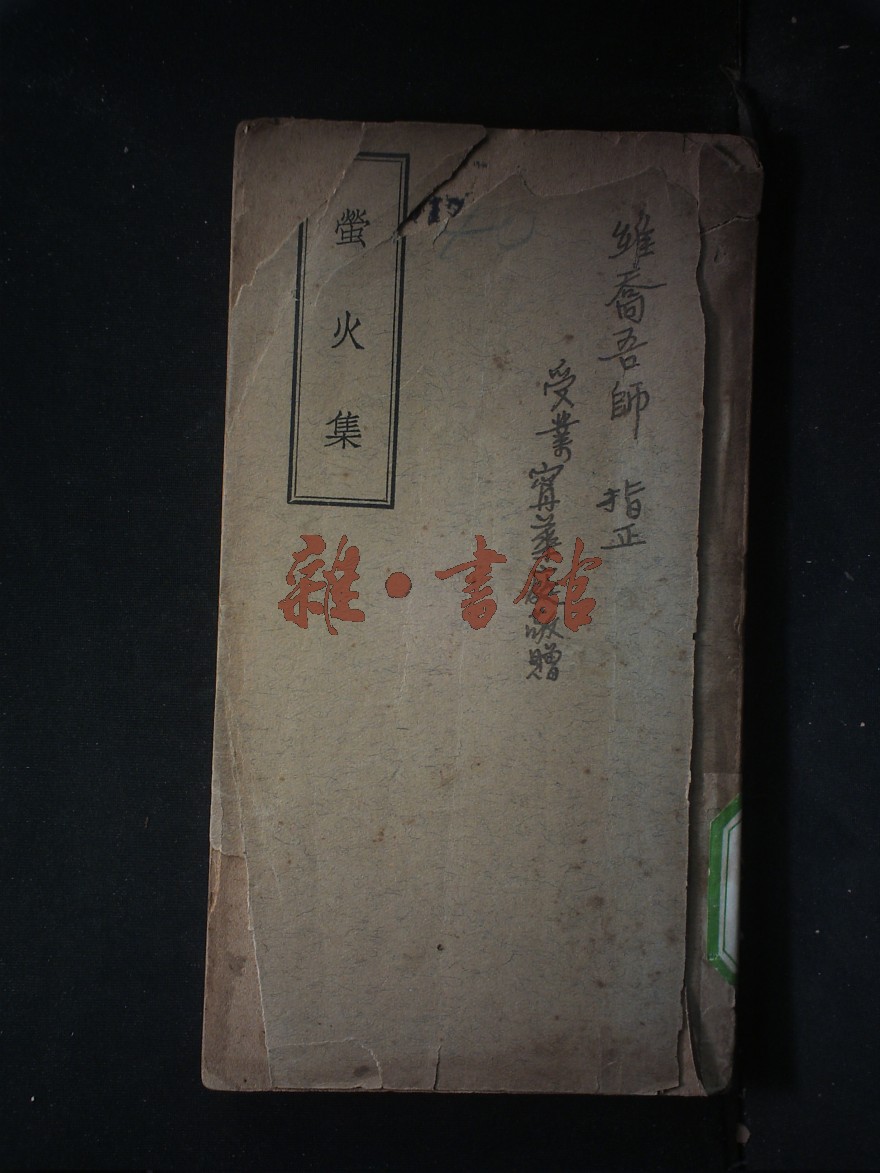 維喬吾師 指正
受業甯華庭敬贈
螢火集
雜·書館